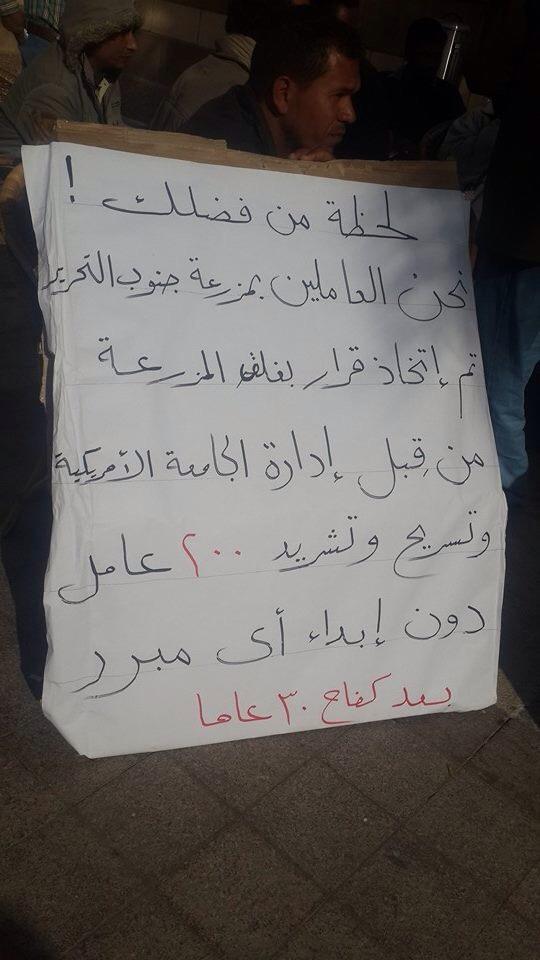 لحظة من فضلك !
نحن العاملين بمزرعة جنوب التحرير
تم إتخاذ قرار بغلق المزرعة
من قِبل إدارة الجامعة الأمريكية
وتسريح وتشريد ٢٠٠ عامل
دون إبداء أى مبرر
بعد كفاح ٣٠ عاما